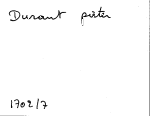 Durant pister
1702/7